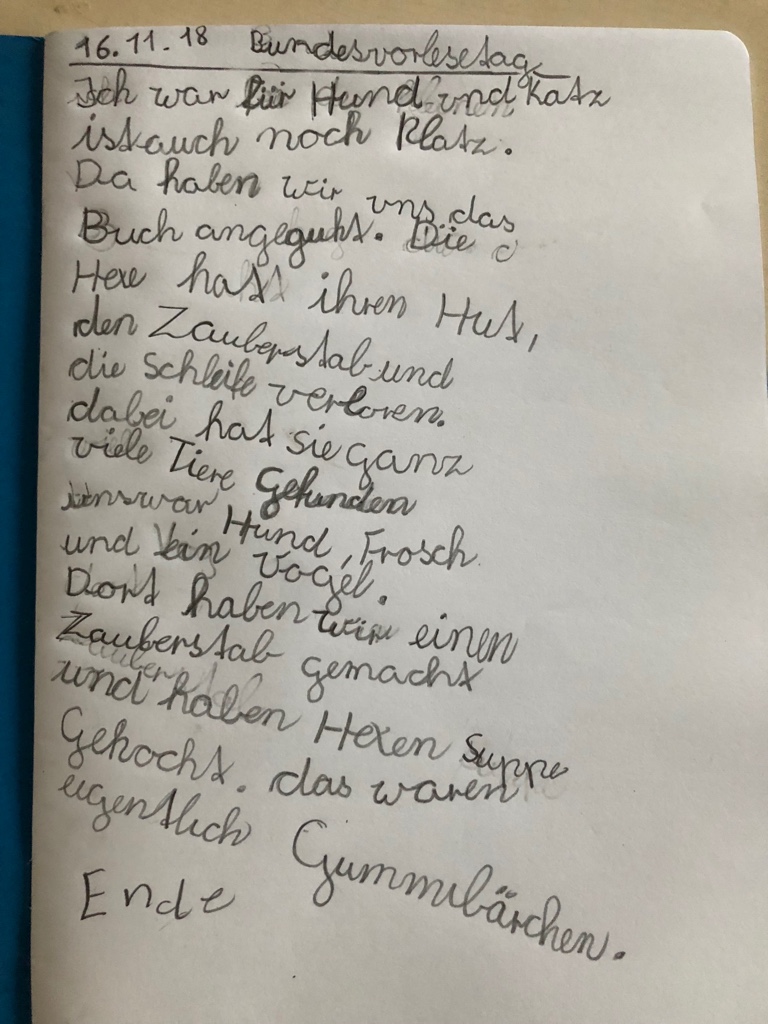 16.11.18 Bundesvorlesetag
Ich war für Hund und Katz
ist auch noch Platz.
Da haben wir uns das
Buch angeguht. Die
Hexe hatt ihren Hut,
den Zauberstab und
die Schleife verloren.
dabei hat sie ganz
viele Tiere Gefunden
unswar Hund, Frosch
und ein Vogel.
Dort haben wir einen
Zauberstab gemacht
und haben Hexen Suppe
Gekocht. das waren
eigentlich Gummibärchen.
Ende